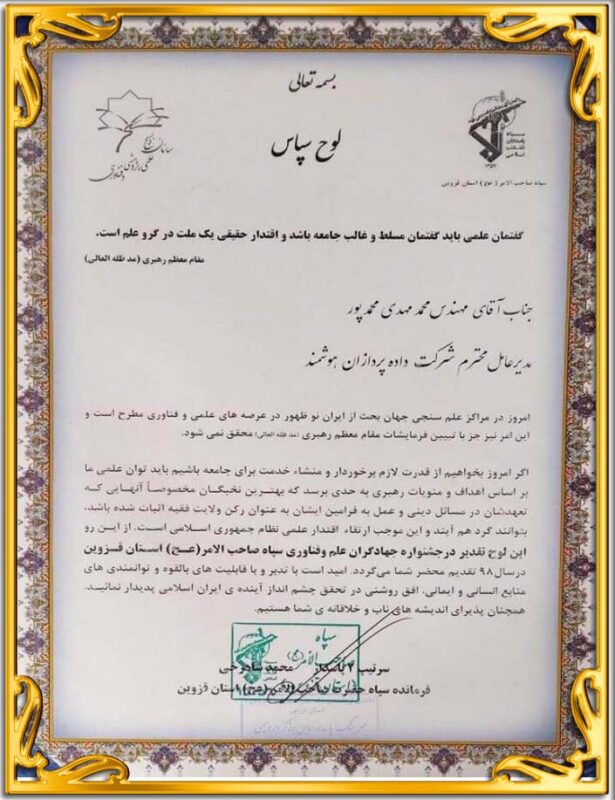 بسمه تعالی
لوح سپاس
سپاه
پاسداران
انقلاب
اسلامی
سازمان بسیج
علمی پژوهشی و فناوری
سپاه صاحب الامر (عج) استان قزوین
گفتمان علمی باید گفتمان مسلط و غالب جامعه باشد و اقتدار حقیقی یک ملت در گرو علم است.
مقام معظم رهبری (مد ظله العالی)
جناب آقای مهندس محمد مهدی محمد پور
مدیر عامل محترم شرکت داده پردازان هوشمند
امروز در مراکز علم سنجی جهان بحث از ایران نو ظهور در عرصه های علمی و فناوری مطرح است و
این امر نیز جز با تبیین فرمایشات مقام معظم رهبری (مد ظله العالی) محقق نمی شود.
اگر امروز بخواهیم از قدرت لازم برخوردار و منشاء خدمت برای جامعه باشیم باید توان علمی ما
بر اساس اهداف و منویات رهبری به حدی برسد که بهترین نخبگان مخصوصاً آنهایی که
تعهدشان در مسائل دینی و عمل به فرامین ایشان به عنوان رکن ولایت فقیه اثبات شده باشد،
بتوانند گرد هم آیند و این موجب ارتقاء اقتدار علمی نظام جمهوری اسلامی است. از این رو
این لوح تقدیر درجشنواره جهادگران علم وفناوری سپاه صاحب الامر(عج) استان قزوین
درسال۹۸ تقدیم محضر شما می‌گردد. امید است با تدبر و با قابلیت های بالقوه و توانمندی های
منابع انسانی و ایمانی، افق روشنی در تحقق چشم انداز آینده ی ایران اسلامی پدیدار نمائید.
همچنان پذیرای اندیشه های ناب و خلاقانه ی شما هستیم.
سرتیپ ۲ پاسدار محمد شاهرخی
فرمانده سپاه حضرت صاحب الامر (عج) استان قزوین
سپاه